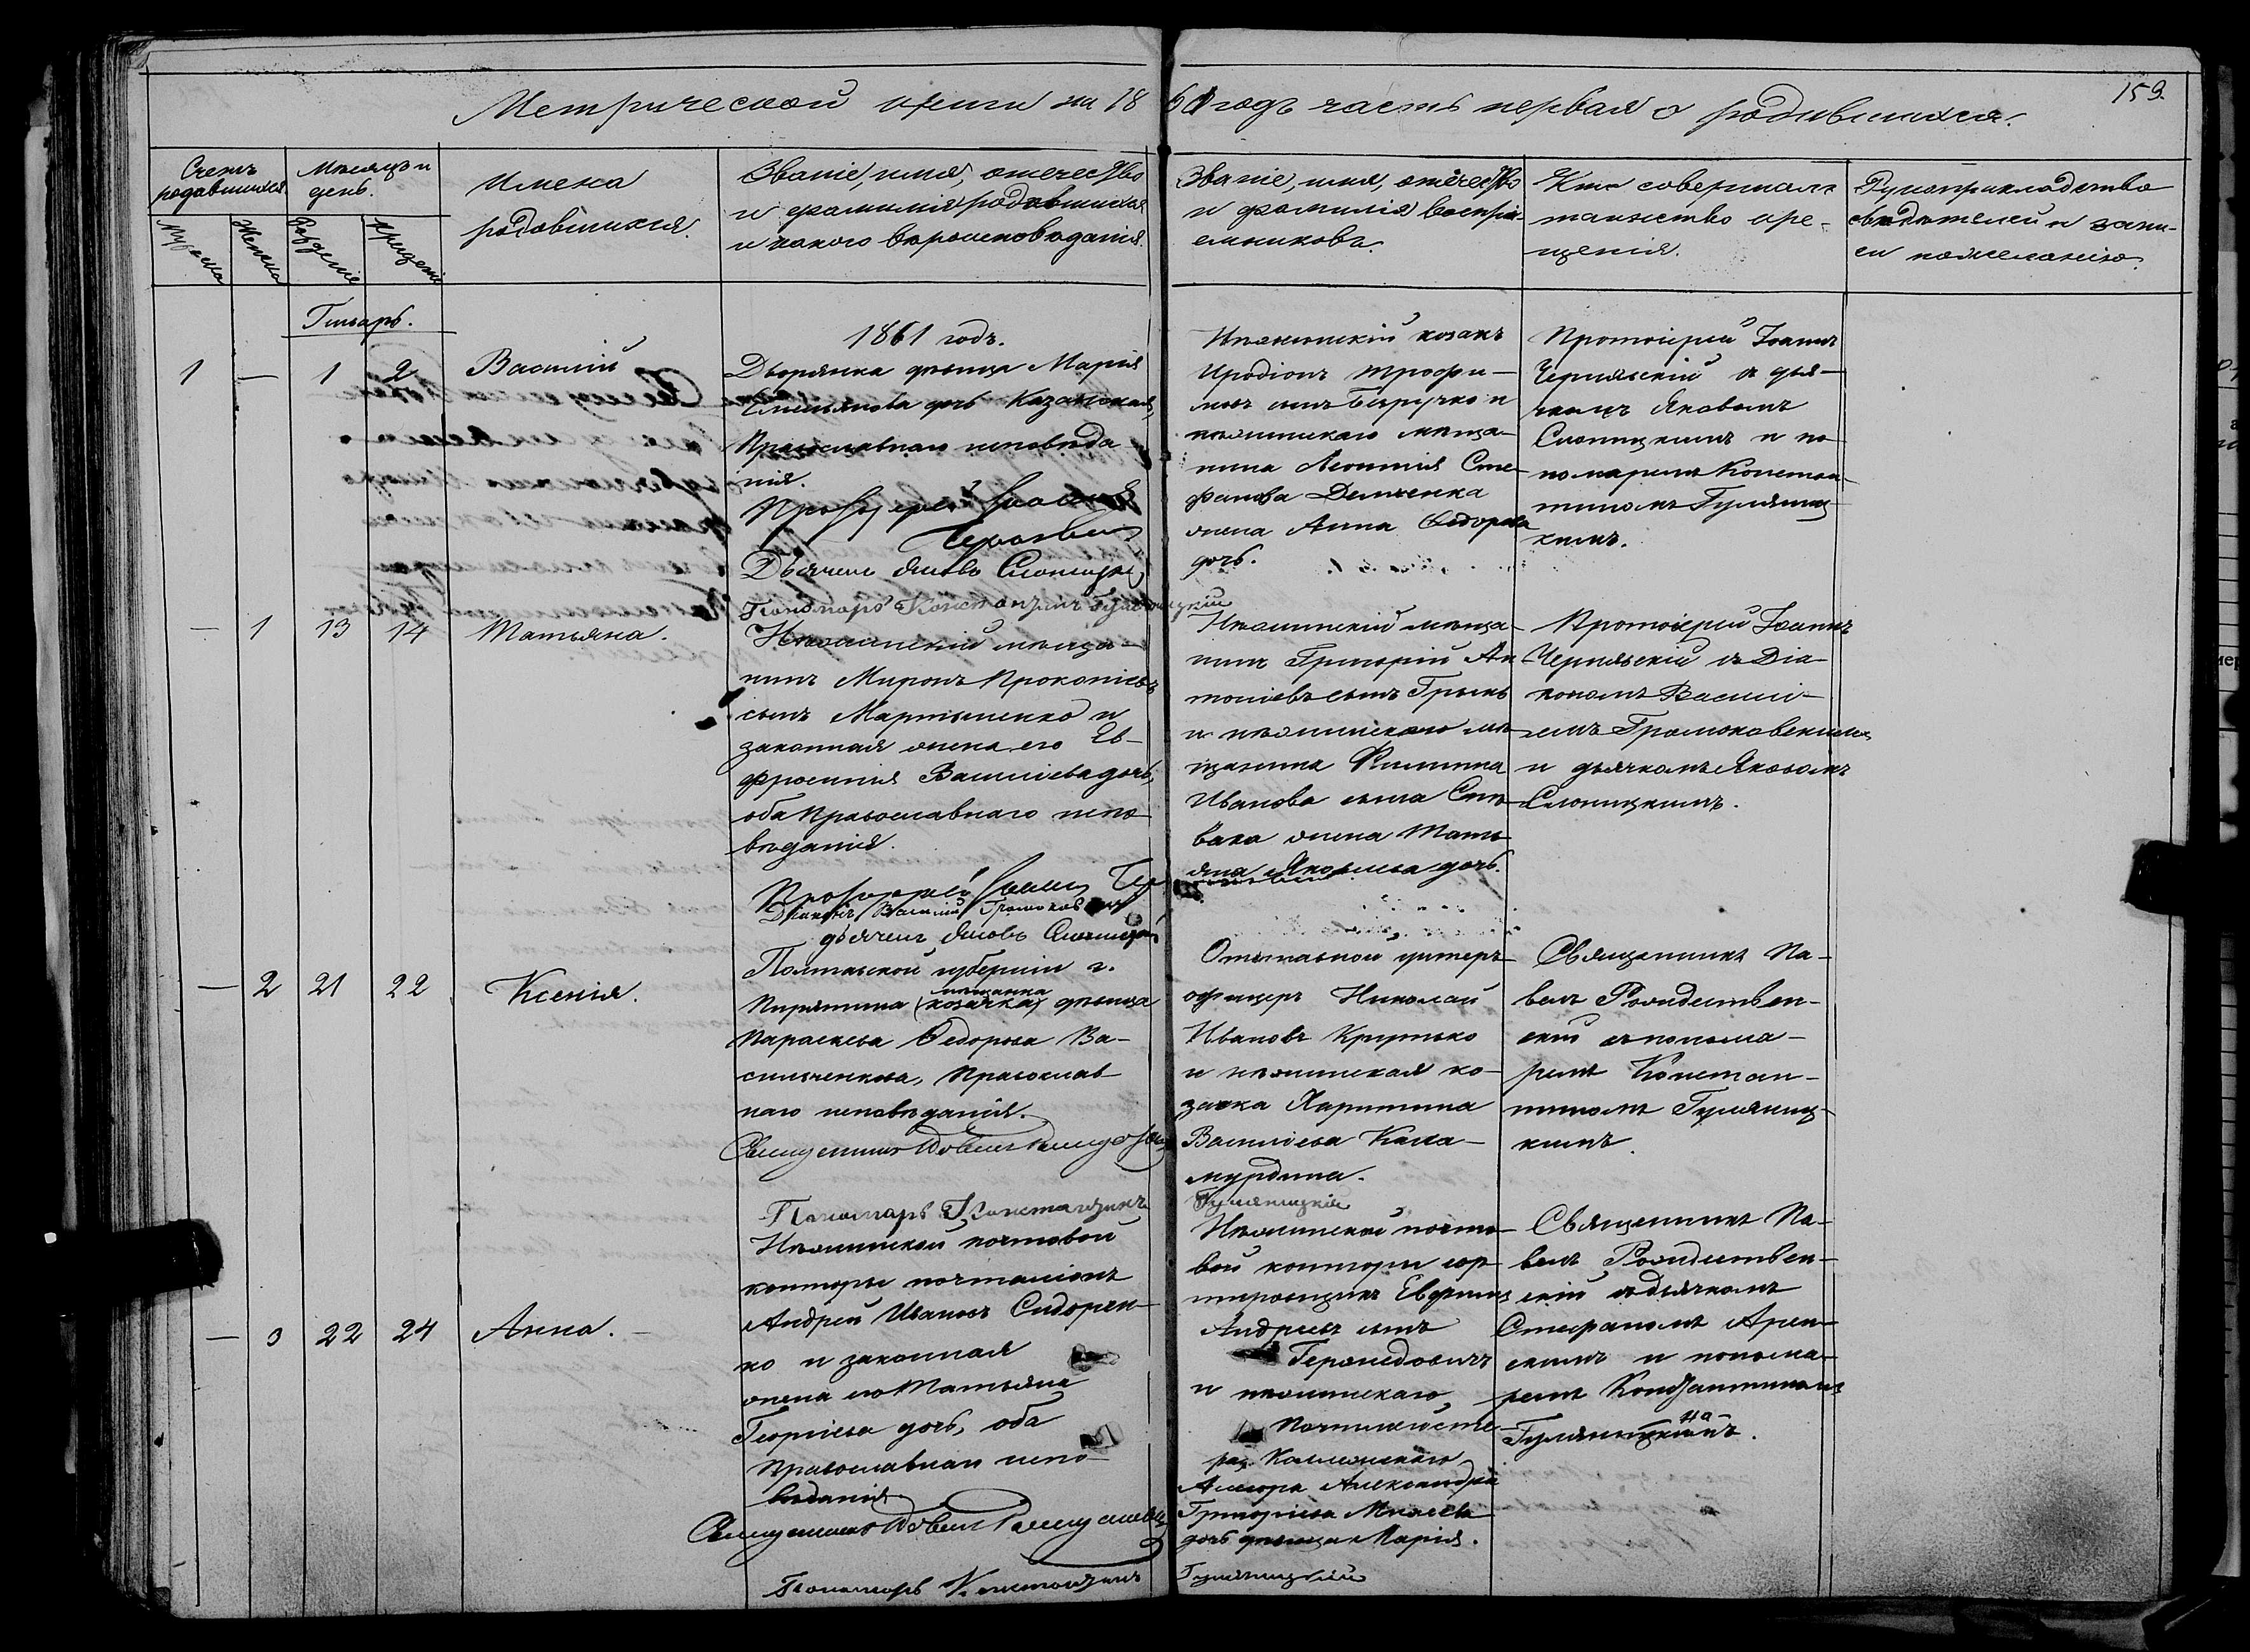 Метрической книги на 1861 годъ часть первая о родившихся.
159.
Счетъ родившихся
Мѣсяцъ и день.
Имена родившихся.
Званіе, имя, отчество
и фамилія родившихся
и какого вѣроисповѣданія.
Званіе, имя, отчество
и фамилія воспрі-
емниковъ.
Кто совершалъ
таинство кре-
щенія.
Рукоприкладство
свидѣтелей и запи-
си по желанію.
Мужеска
Женска
Рожденіе
Крещеніе
Генварь.
1861 годъ.
1 — 1 2 Василій
Дворянка дѣвица Марія
Емельянова дочь Казанская,
Православнаго исповѣда
нія.
Протоіерей Іоаннъ
Дьячекъ Яковъ Слоницкій
Пономарь Константинъ Гуляницкій
Нѣжинскій козакъ
Иродіонъ Трофи-
мовъ сынъ и
нѣжинскаго мѣща-
нина Леонтія Сте-
фанова Демченка
жена Анна Ѳедорова
дочь.
Протоіерей Іоаннъ
Чернявскій съ дья-
чкомъ Яковомъ
Слоницкимъ и по-
номаремъ Констан-
тиномъ Гуляниц-
кимъ.
— 1 13 14 Татьяна.
Нѣжинскій мѣща-
нинъ Миронъ Прокопіевъ
сынъ Мартыненко и
законная жена его Ев-
фросинія Василіева дочь,
оба Православнаго испо-
вѣданія.
Протоіерей Іоаннъ Чер
Діаконъ Василій Громоковскій
дьячекъ Яковъ Слоницкій
Нѣжинскій мѣща-
нинъ Григорій Ан
тоніевъ сынъ
и нѣжинскаго мѣ-
щанина Филиппа
Иванова сына
жена Тать-
яна Яковлева дочь.
Протоіерей Іоаннъ
Чернявскій съ Діа-
кономъ Василі-
емъ Громоковскимъ
и дьячкомъ Яковомъ
Слоницкимъ.
— 2 21 22 Ксенія.
Полтавской губерніи г.
Пирятина (козачка) мѣщанка дѣвица
Параскева Ѳедорова Ва-
сильченкова, Православ
наго исповѣданія.
Священникъ Павелъ Рождественскій
Пономарь Константинъ Гуляницкій
Отставной унтеръ-
офицеръ Николай
Ивановъ Крутько
и нѣжинская ко-
зачка Харитина
Василіева Кала-
мурдина.
Священникъ Па-
велъ Рождествен-
скій съ понома-
ремъ Констан-
тиномъ Гуляниц-
кимъ.
— 3 22 24 Анна.
Нѣжинской почтовой
конторы почталіонъ
Андрей Ивановъ Сидорен-
ко и законная
жена его Татьяна
Георгіева дочь, оба
православнаго испо-
вѣданія
Священникъ Павелъ Рождественскій
Пономарь Константинъ Гуляницкій
Нѣжинской почто-
вой конторы сор-
тировщикъ Евфимъ
Андреевъ сынъ
и нѣжинскаго
Почтмейсте-
ра, Коллежскаго
Ассесора Александра
Григоріева
дочь дѣвица Марія.
Священникъ Па-
велъ Рождествен-
скій съ дьячкомъ
Стефаномъ Арен-
скимъ и понома-
ремъ Константиномъ
Гуляницкимъ.